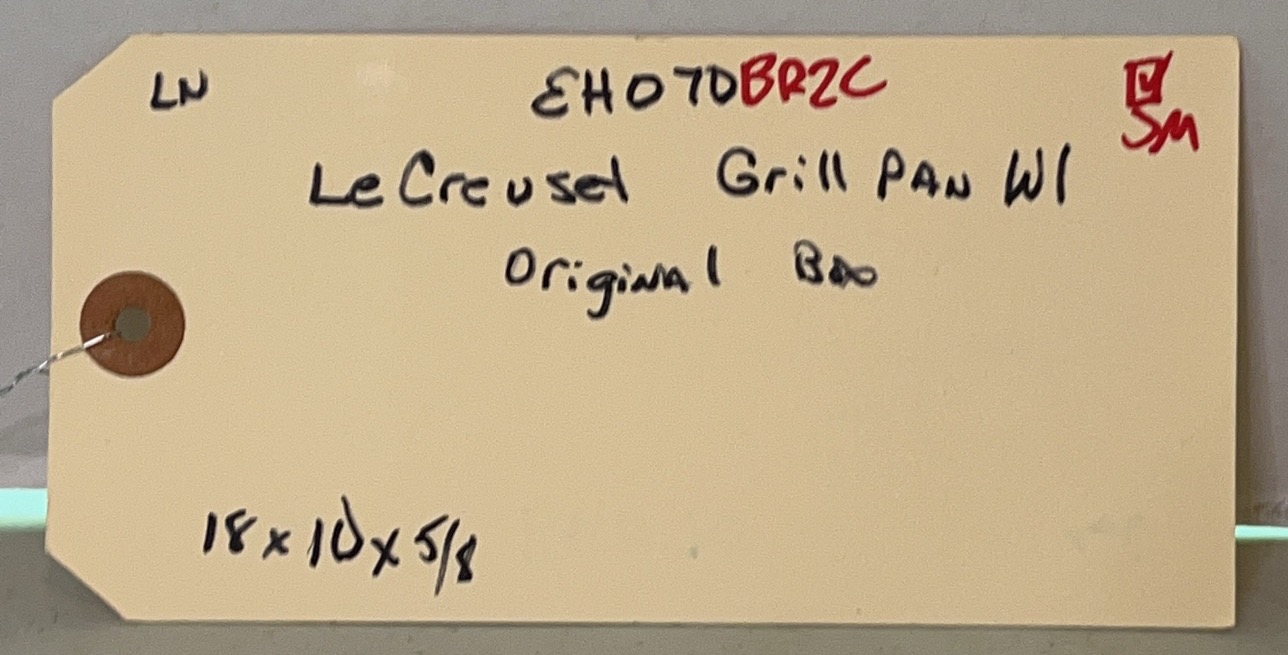 LN EH07DBR2C
SM
Le Creuset Grill PAN W/
Original Box
18 x 10 x 5/8